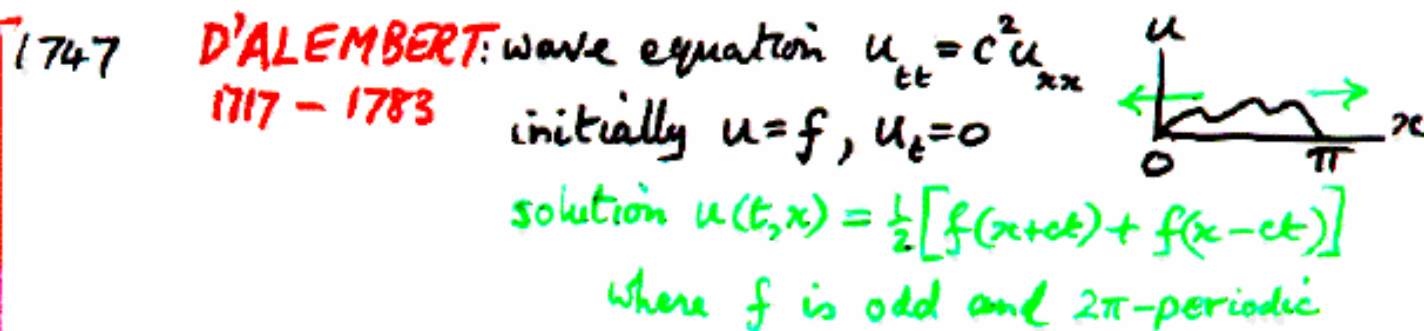 1747 D'ALEMBERT: wave equation u_tt = c²u_xx
1717 - 1783 initially u=f, u_t=0
solution u(t,x) = ½[f(x+ct) + f(x-ct)]
where f is odd and 2π-periodic
u
x
0 π